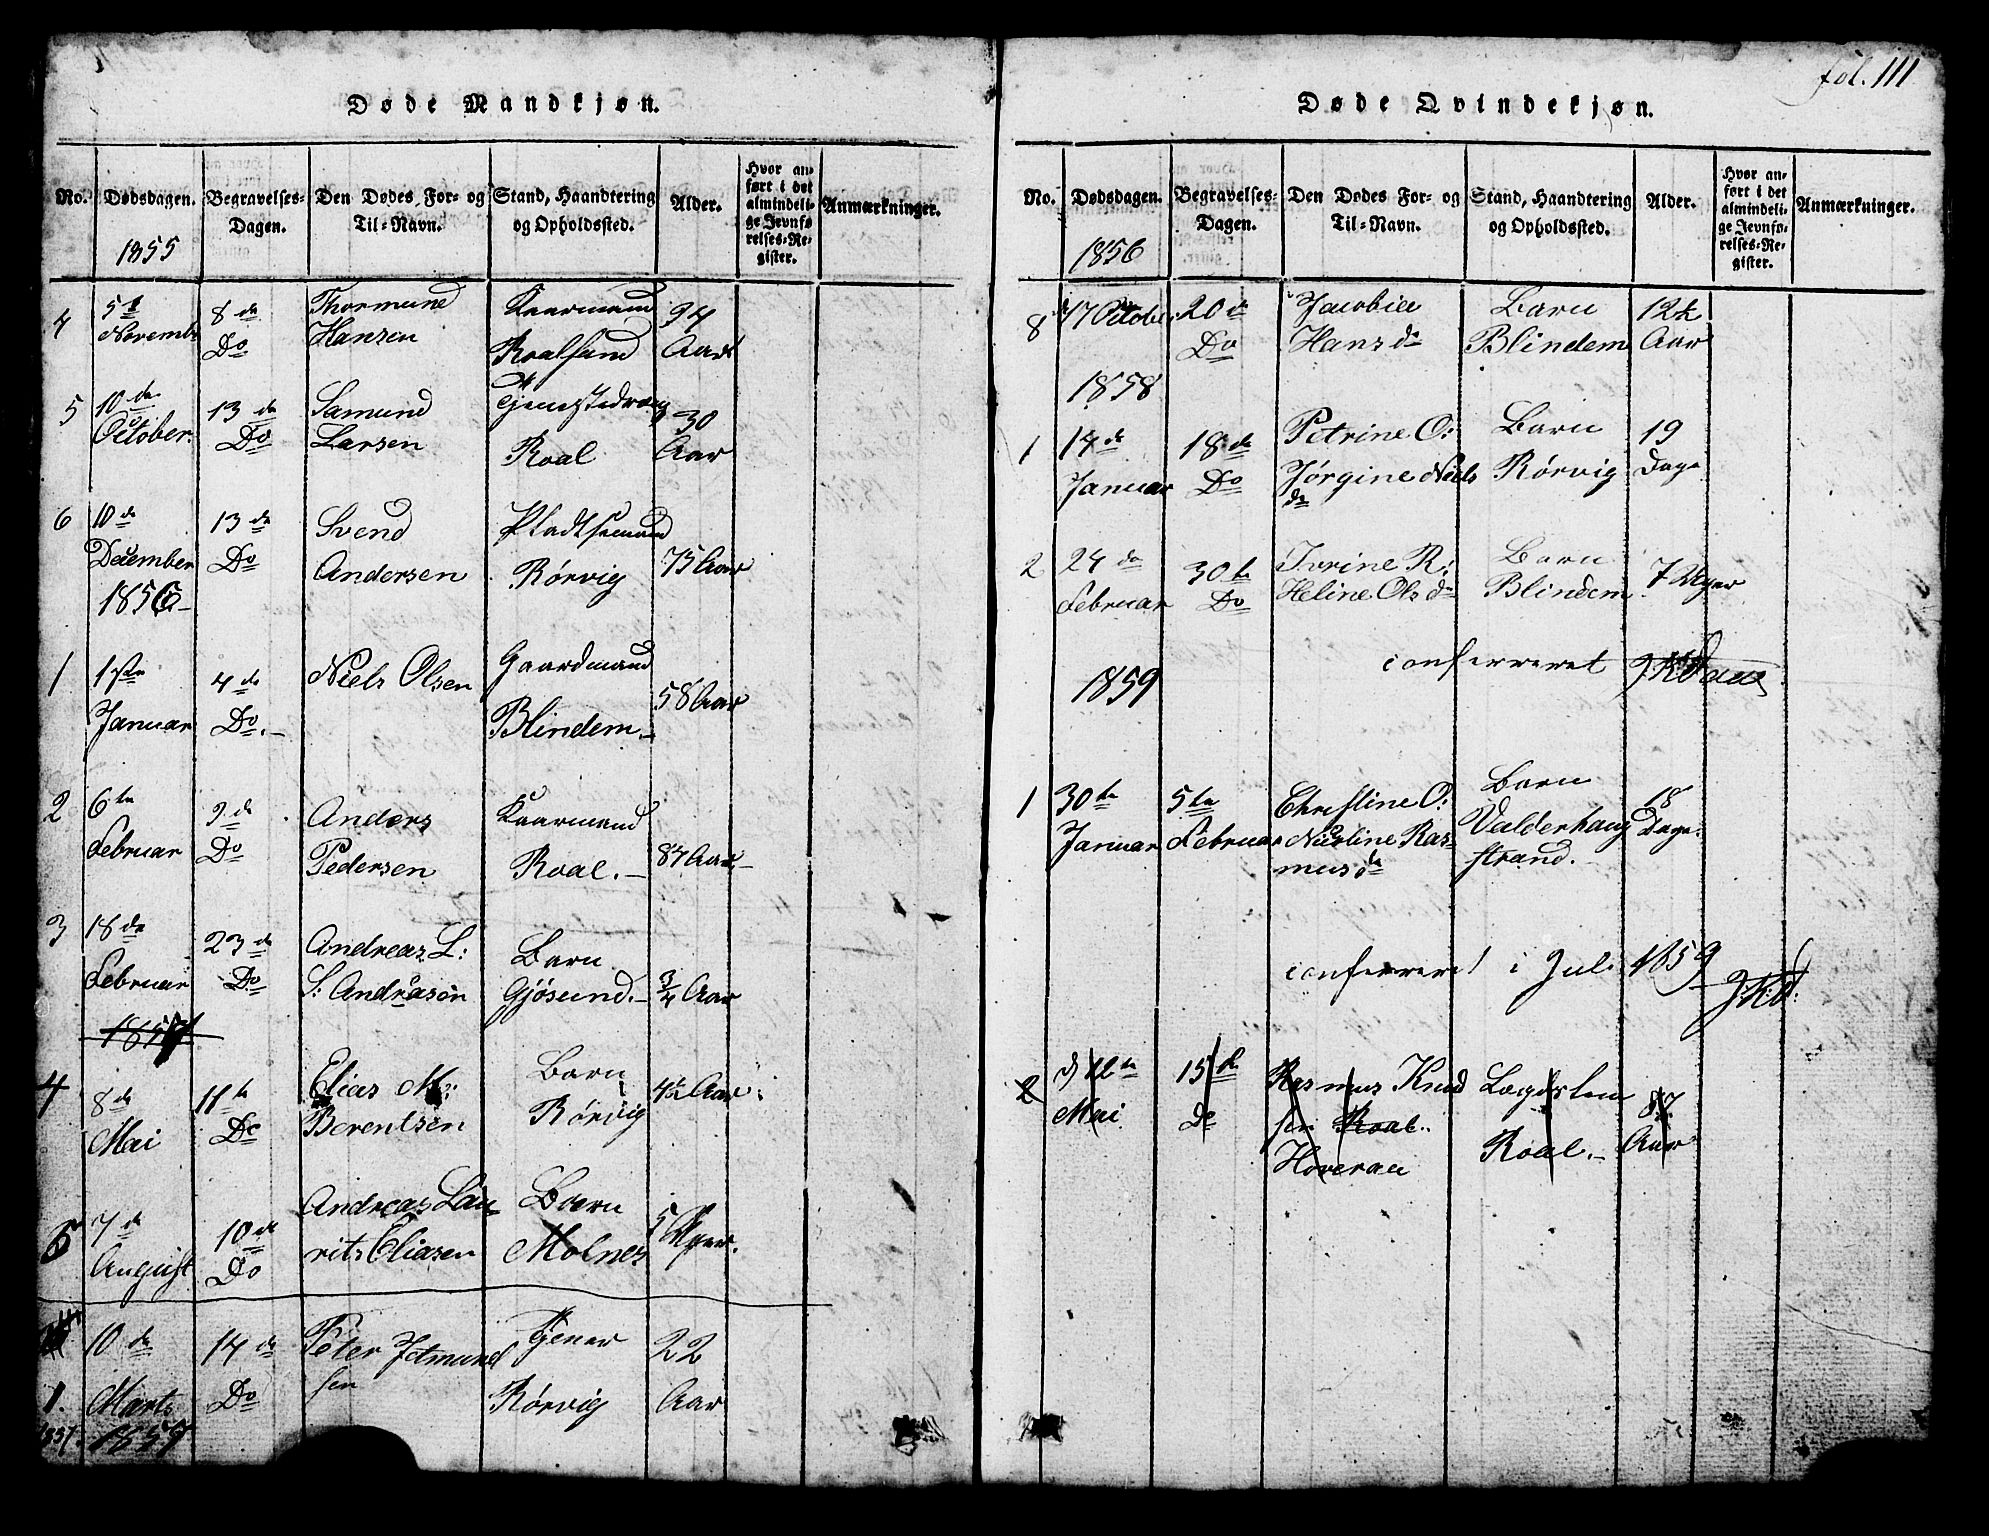 fol. 111
Døde Mandkjøn.
No.
Dødsdagen.
Begravelses-
Dagen.
Den Dødes For- og
Til-Navn.
Stand, Haandtering
og Opholdssted.
Alder.
Hvor an-
ført i det
almindeli-
ge Jevnfø-
relses-Re-
gister.
Anmærkninger.
1855
4
5te
Novembr
8de
Do
Thormund
Hansen
Kaarmand
Roalsund
94
Aar
5
10de
October.
13de
Do
Samund
Larsen
Tjenestedreng
Roal
30
Aar
6
10de
December
13de
Do
Svend
Andersen
Pladsemand
Rørvig
75 Aar
1856
1
1ste
Januar
4de
Do.
Niels Olsen
Gaardmand
Blindem.
58 Aar
2
6te
Februar
9de
Do
Anders
Pedersen
Kaarmand
Roal.
87 Aar
3
18de
Februar
23de
Do
Andreas L:
S: Andreasen
Barn
Gjøsund.
3/4 Aar
1857
4
8de
Mai
11te
Do
Elias M:
Berentsen
Barn
Rørvig
4½ Aar
5
7de
August
10de
Do
Andreas Lau-
rits Eliasen
Barn
Molnes
5 Uger.
1.
10de
Marts
14de
Do
Peter Jetmund
sen
Tjener
Rørvig
22
Aar
1857.
1857
Døde Qvindekjøn.
No.
Dødsdagen.
Begravelses-
Dagen.
Den Dødes For- og
Til-Navn.
Stand, Haandtering
og Opholdssted.
Alder.
Hvor an-
ført i det
almindeli-
ge Jevnfø-
relses-Re-
gister.
Anmærkninger.
1856
8
17 October
20de
Do
Jacobie
Hansdr
Barn
Blindem
12½
Aar
1858
1
14de
Januar
18de
Do
Petrine O:
Jørgine Niels
dr
Barn
Rørvig
19
Dage
2
24de
Februar
30te
Do
Iverine R:
Heline Olsdr
Barn
Blindem
7 Uger
conferreret
1859
1
30te
Januar
5te
Februar
Christine O:
Nicoline Ras-
musdr
Barn
Valderhaug
strand.
18
Dage.
conferreret i Juli 1859
2
d 12te
Mai
15de
Do
Rasmus Knud
sen Roal.
Hoveraa
Lægdslem
Roal.
87
Aar